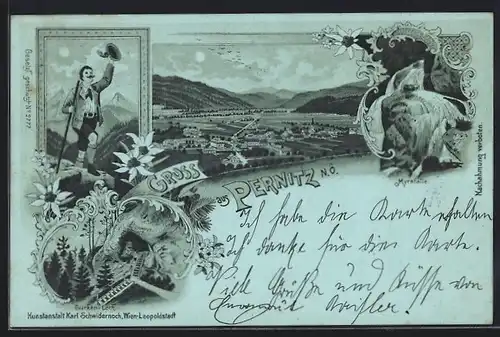 Gesetzl. geschützt No 3777
GRUSS
aus
PERNITZ N.Ö.
Myrafälle
Nachahmung verboten
Ich habe die Karte erhalten
ich danke für die Karte.
Viele Grüße und Küsse von
Kunstanstalt Karl Schwidernoch, Wien-Leopoldstadt